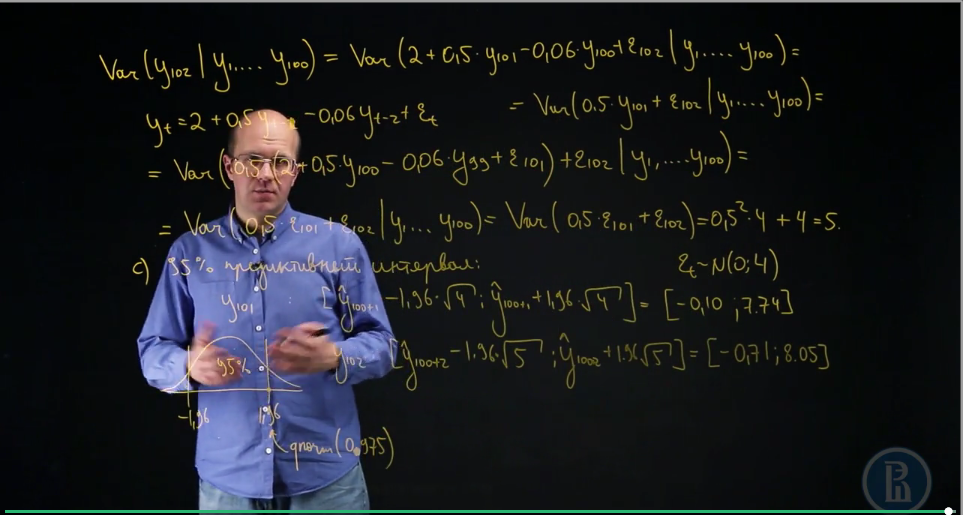 Var(y₁₀₂ | y₁.... y₁₀₀) = Var(2 + 0,5·y₁₀₁ - 0,06·y₁₀₀ + ε₁₀₂ | y₁..... y₁₀₀) =
= Var(0.5·y₁₀₁ + ε₁₀₂ | y₁.....y₁₀₀) =
yₜ = 2 + 0,5y - 0,06yₜ₋₂ + εₜ
= Var(0,5·(2 + 0,5·y₁₀₀ - 0,06·y₉₉ + ε₁₀₁) + ε₁₀₂ | y₁,....y₁₀₀) =
= Var(0,5·ε₁₀₁ + ε₁₀₂ | y₁... y₁₀₀) = Var(0,5·ε₁₀₁ + ε₁₀₂) = 0,5²·4 + 4 = 5.
c) 95% предиктивный интервал:
εₜ ~ N(0;4)
y₁₀₁ : [ŷ₁₀₀₊₁ - 1,96·√4 ; ŷ₁₀₀₊₁ + 1,96·√4] = [-0,10 ; 7.74]
y₁₀₂ [ŷ₁₀₀₊₂ - 1.96·√5 ; ŷ₁₀₀₂ + 1.96√5] = [-0,71 ; 8.05]
95%
-1,96 1,96
qnorm(0.975)